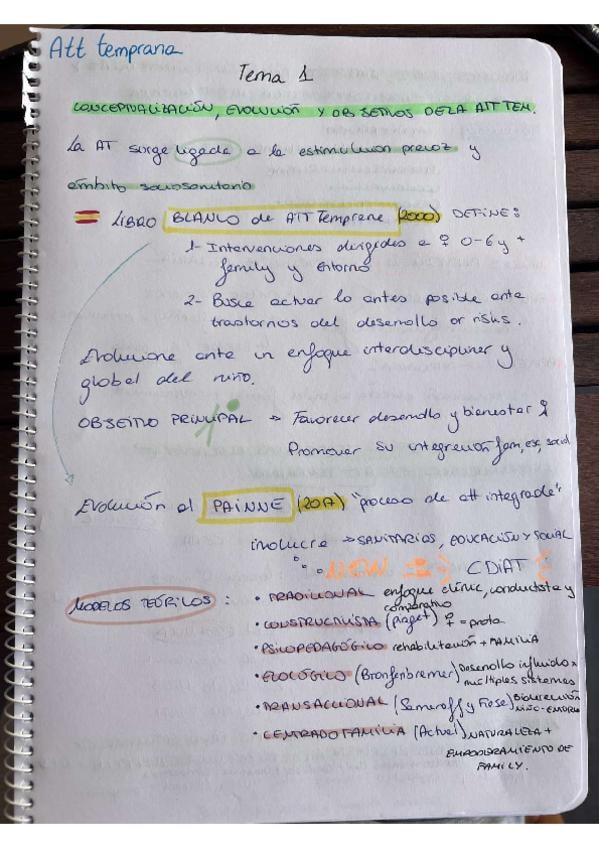 Att temprana
Tema 1
CONCEPTUALIZACIÓN, EVOLUCIÓN Y OBJETIVOS DE LA ATT TEM.
La AT surge ligada a la estimulación precoz y
ámbito sociosanitario
LIBRO BLANCO de ATT Temprana (2000) DEFINES
1- Intervenciones dirigidas a ♀ 0-6 y +
family y entorno
2- Busca actuar lo antes posible ante
trastornos del desarrollo or risks.
Evoluciona ante un enfoque interdisciplinar y
global del niño.
OBJETIVO PRINCIPAL → Favorecer desarrollo y bienestar ♀
Promover su integración fam, esc, social
Evolución al PAINNE (2017) "proceso de att integrada"
involucra → SANITARIOS, EDUCACIÓN Y SOCIAL
NOW = CDIAT
MODELOS TEÓRICOS :
• TRADICIONAL enfoque clínic, conductista y
comparativo
• CONSTRUCTIVISTA (Piaget) ♀ = prota
• PSICOPEDAGÓGICO rehabilitación + FAMILIA
• ECOLÓGICO (Bronfenbrenner) Desarrollo influido x
múltiples sistemas
• TRANSACCIONAL (Sameroff y Fiese) Bidirección
niño-entorno
• CENTRADO FAMILIA (Actual) NATURALEZA +
EMPODERAMIENTO DE
FAMILY.